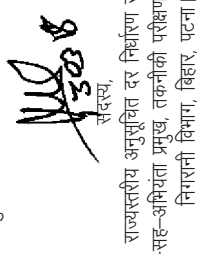 सदस्य,
राज्यस्तरीय अनुसूचित दर निर्धारण
-सह-अभियंता प्रमुख, तकनीकी परीक्षण
निगरानी विभाग, बिहार, पटना